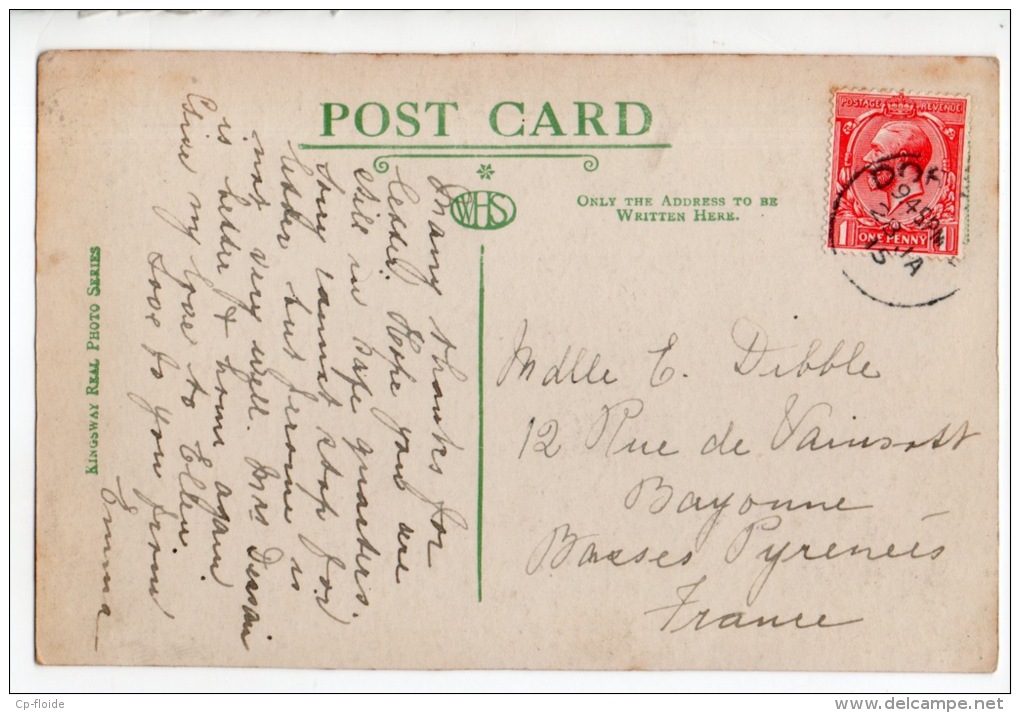 POST CARD
WHS
ONLY THE ADDRESS TO BE
WRITTEN HERE.
KINGSWAY REAL PHOTO SERIES
POSTAGE REVENUE
1 ONE PENNY 1
9 48PM
15
Many thanks for
letter. Hope you are
still in safe quarters.
Sorry cannot stop for
letter but Jerome is
not very well. Mrs
is better & home again
Give my love to Ellen
Love to you from
Emma
Mdlle E. Dibble
12 Rue de
Bayonne
Basses Pyrenees
France
Cp-floide
www.delcampe.net